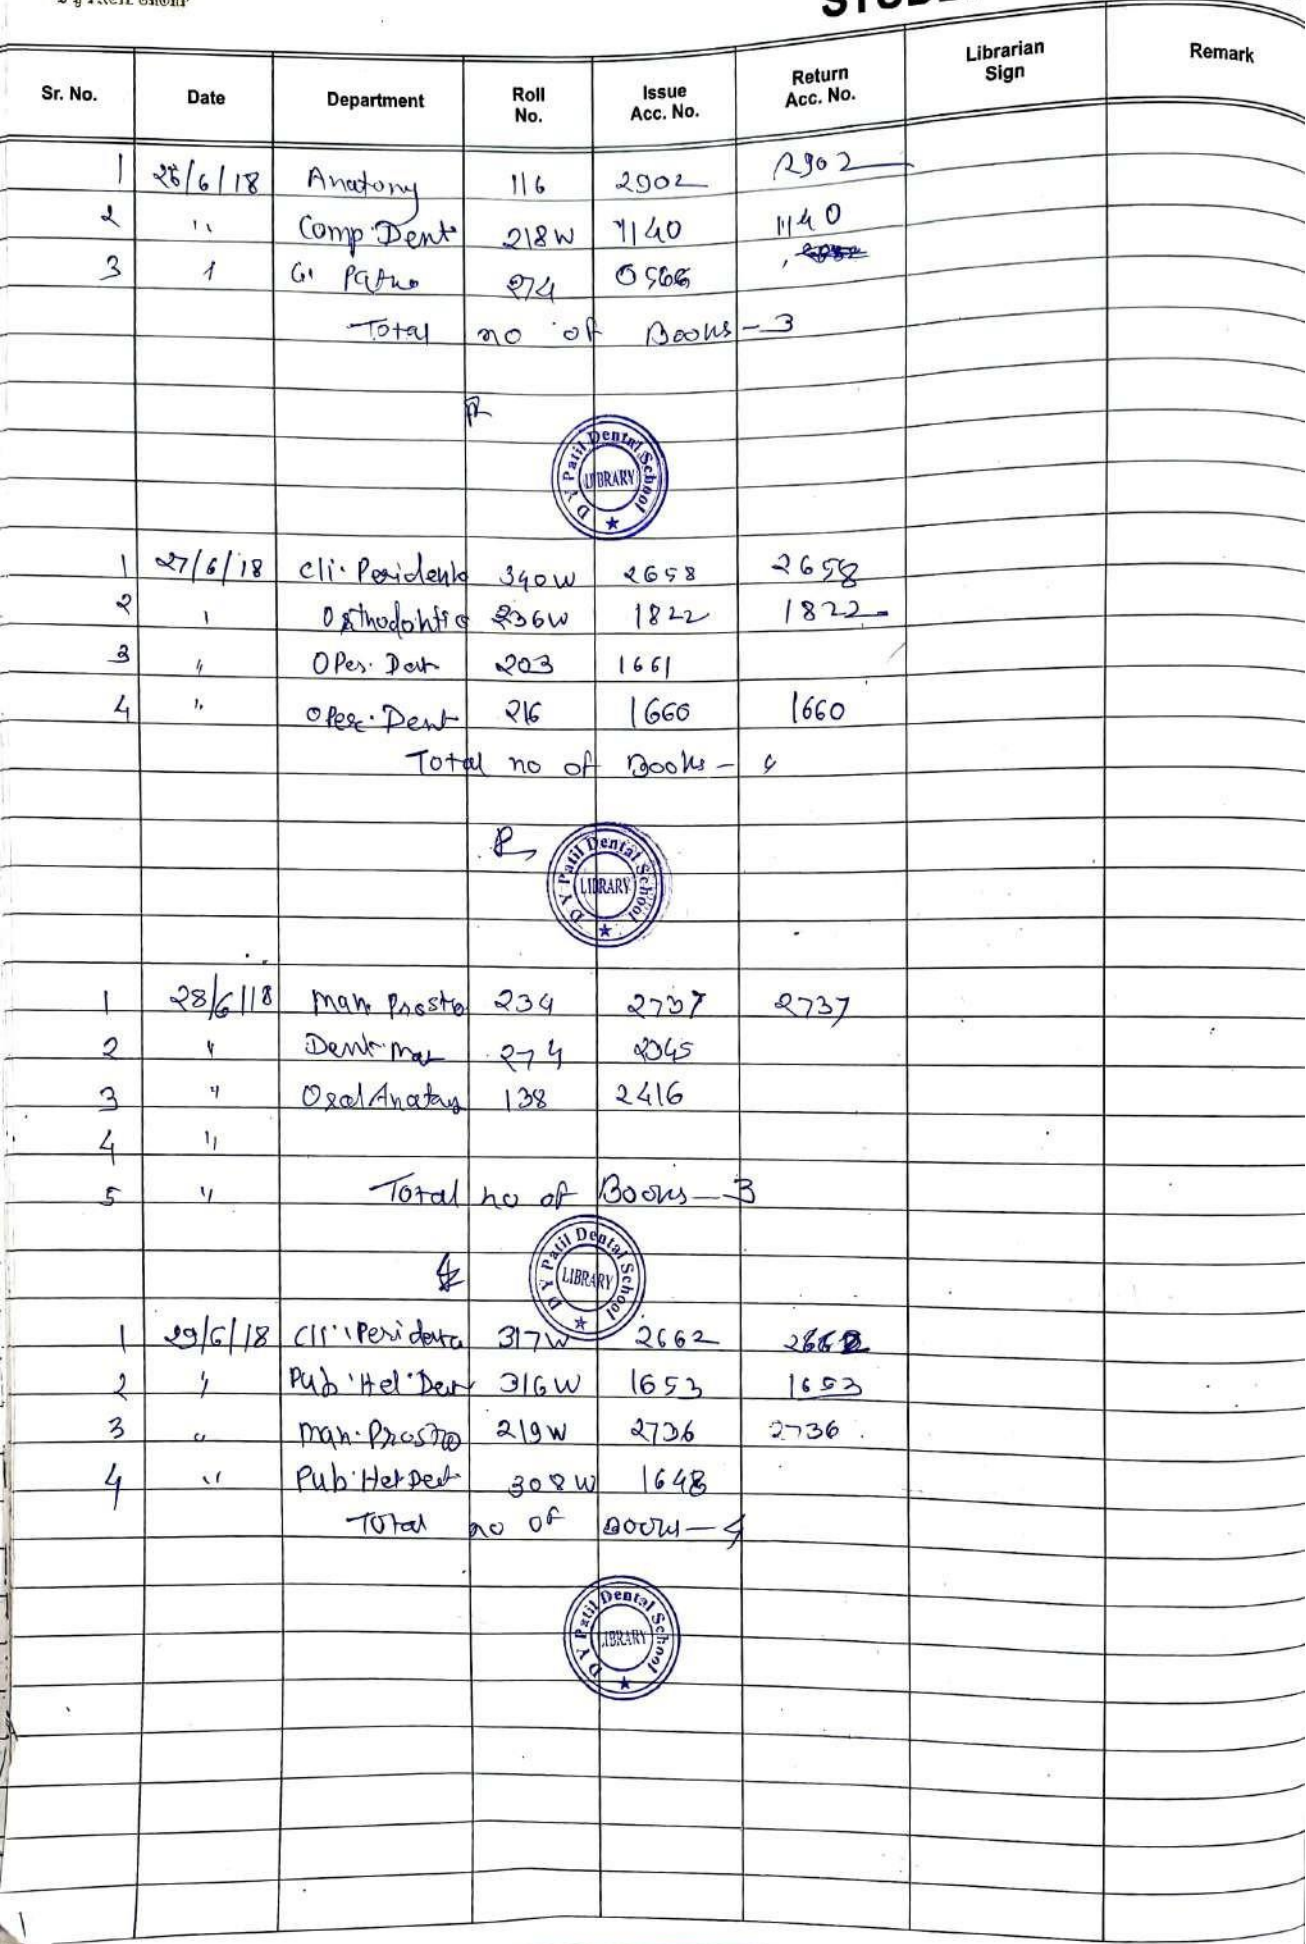 Sr. No. Date Department Roll No. Issue Acc. No. Return Acc. No. Librarian Sign Remark
1 26/6/18 Anatomy 116 2902 2902
2 " Comp. Dent 218W 1140 1140
3 " G. Patho 274 0566
Total no of Books - 3
D Y Patil Dental School LIBRARY
1 27/6/18 Cli. Peridento 340W 2658 2658
2 " Orthodontic 236W 1822 1822
3 " Oper. Dent 203 1661
4 " Oper. Dent 216 1660 1660
Total no of Books - 4
D Y Patil Dental School LIBRARY
1 28/6/18 Man Prosto 234 2737 2737
2 " Dent. Mat 274 2345
3 " Oral Anatomy 138 2416
4 "
5 " Total no of Books - 3
D Y Patil Dental School LIBRARY
1 29/6/18 Cli. Peridenta 317W 2662 2662
2 " Pub. Hel. Dent 316W 1653 1653
3 " Man. Prosto 219W 2736 2736
4 " Pub. Hel Dent 308W 1648
Total no of Books - 4
D Y Patil Dental School LIBRARY